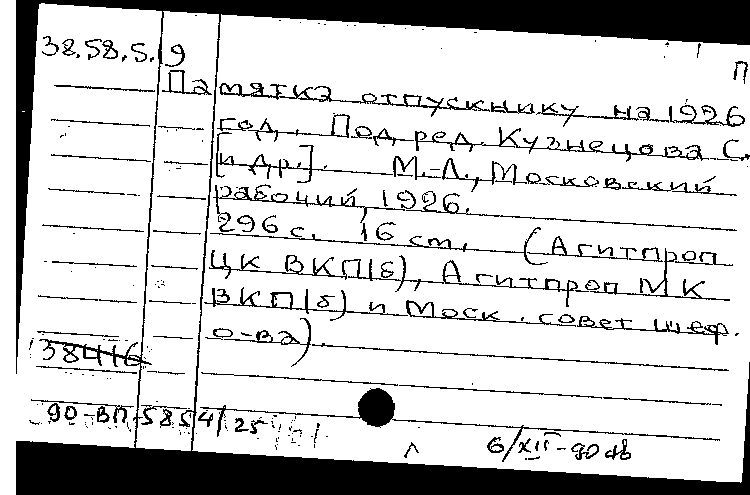 38.58.5.19
П
Памятка отпускнику на 1926
год. Под ред. Кузнецова С.
[и др.]. М.-Л., Московский
рабочий, 1926.
296 с. 16 cm. (Агитпроп
ЦК ВКП(б), Агитпроп МК
ВКП(б) и Моск. совет шеф.
о-ва).
38416
90-ВП-5854/25
6/XII-90